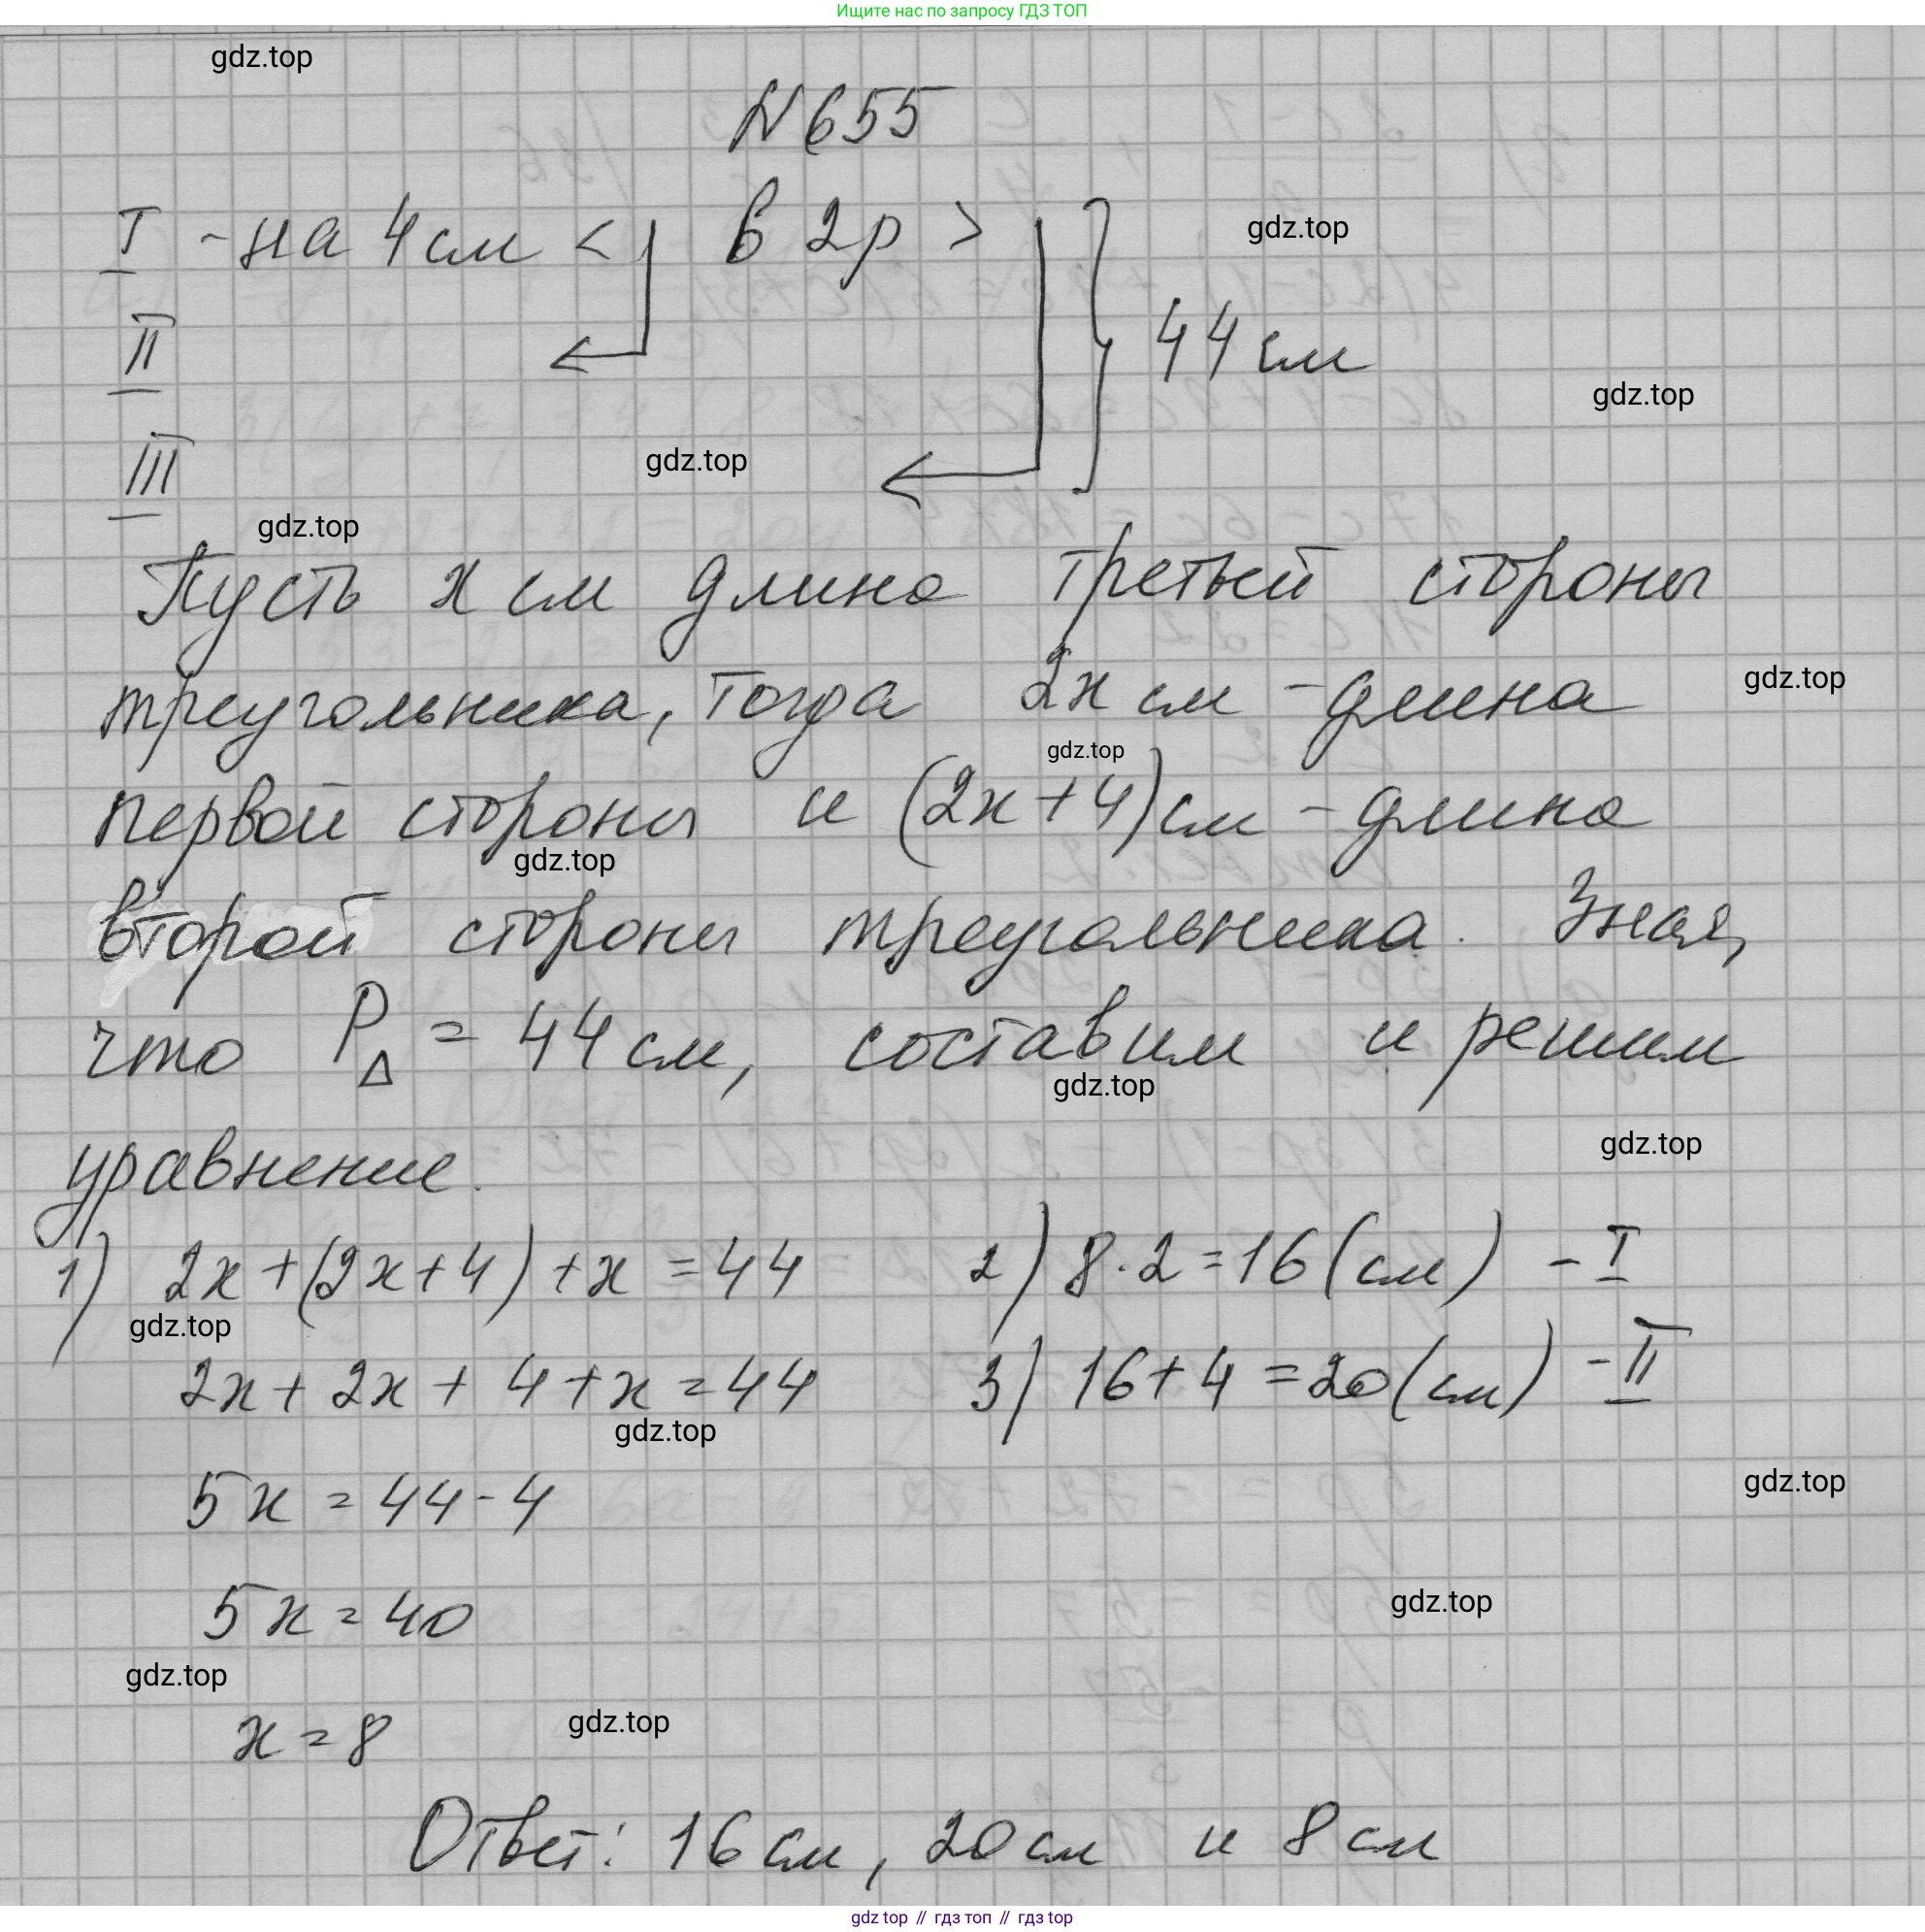 Ищите нас по запросу ГДЗ ТОП
gdz.top
N 655
I - на 4 см < в 2 р >
gdz.top
II
44 см
gdz.top
III
gdz.top
gdz.top
Пусть x см длина третьей стороны
треугольника, тогда 2x см - длина
gdz.top
gdz.top
первой стороны и (2x+4) см - длина
gdz.top
второй стороны треугольника. Зная,
что P△ = 44 см, составим и решим
gdz.top
gdz.top
уравнение.
1) 2x+(2x+4)+x=44 2) 8·2=16(см) - I
gdz.top
2x+2x+4+x=44 3) 16+4=20(см) - II
gdz.top
gdz.top
5x=44-4
5x=40
gdz.top
gdz.top
x=8
gdz.top
Ответ: 16 см, 20 см и 8 см
gdz top // гдз топ // гдз top